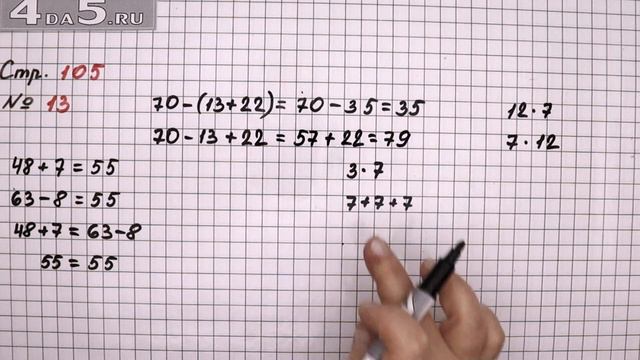 4DA5.RU
Стр. 105
№ 13
70-(13+22)= 70-35=35
70-13+22 = 57+22=79
48+7=55
63-8=55
48+7=63-8
55=55
3·7
7+7+7
12·7
7·12